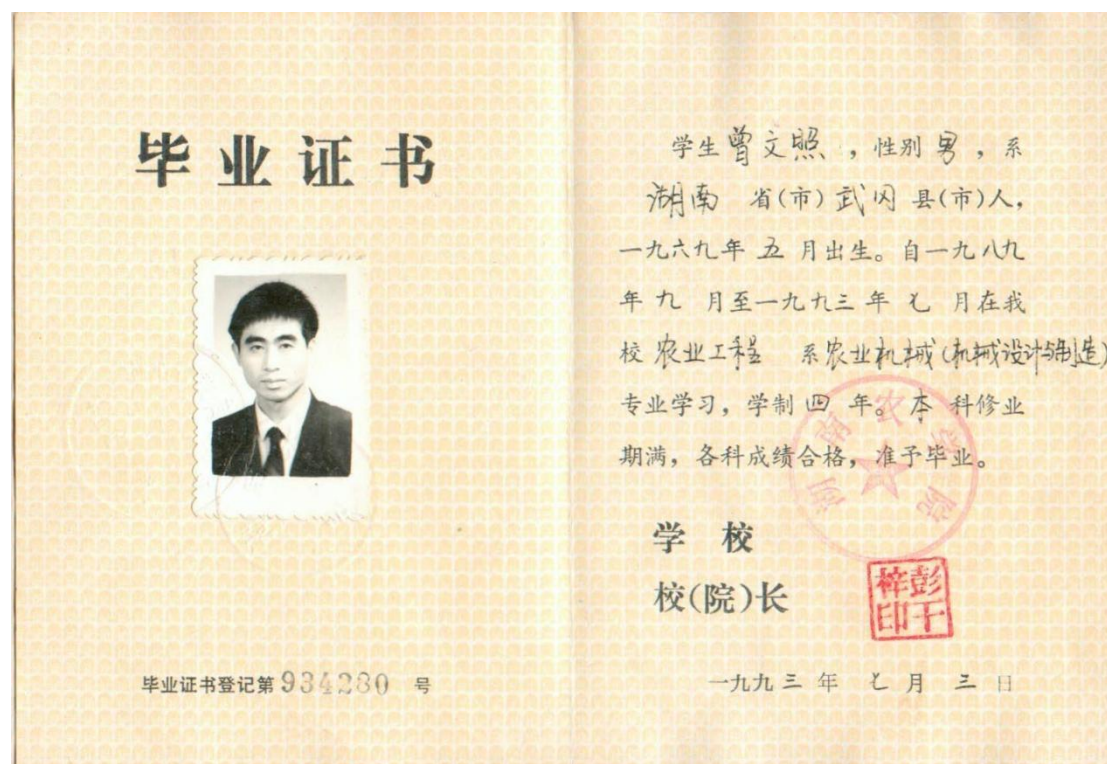 毕业证书
毕业证书登记第934280 号
学生曾文照，性别男，系
湖南 省(市)武冈县(市)人，
一九六九年五月出生。自一九八九
年九月至一九九三年七月在我
校农业工程 系农业机械(机械设计与制造)
专业学习，学制四年。本科修业
期满，各科成绩合格，准予毕业。
湖南农学院
学 校
校(院)长
彭干梓印
一九九三年七月三日